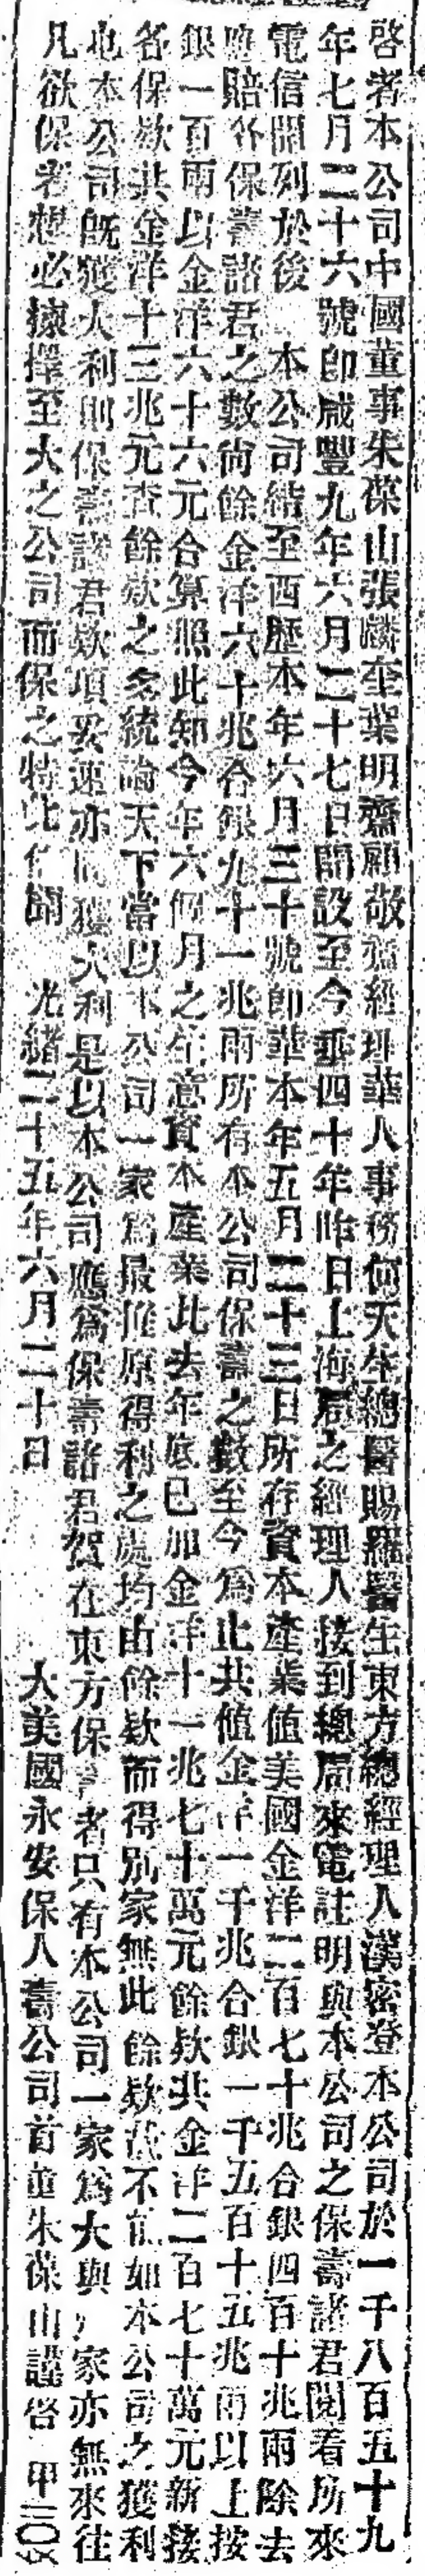 啓者本公司中國董事朱葆山張麟奎葉明齋顧敬經理華人事務何天生總醫賜羅醫生東方總經理人漢密登本公司於一千八百五十九
年七月二十六號卽咸豐九年六月二十七日開設至今垂四十年昨日上海局之經理人接到總局來電註明與本公司之保壽諸君閱看所來
電信開列於後 本公司結至西歷本年六月三十號卽華本年五月二十三日所存資本產業值美國金洋二百七十兆合銀四百十兆兩除去
應賠各保壽諸君之數尙餘金洋六十兆合銀九十一兆兩所有本公司保壽之數至今爲止共值金洋一千兆合銀一千五百十五兆兩以上按
銀一百兩以金洋六十六元合算照此知今年六個月之生意資本產業比去年底已加金洋十一兆七十萬元餘欵共金洋二百七十萬元新接
各保欵共金洋十三兆元查餘欵之多統論天下當以本公司一家爲最推原得利之處均由餘欵而得別家無此餘欵故不能如本公司之獲利
也本公司旣獲大利則保壽諸君欵項妥速亦同獲大利是以本公司應爲保壽諸君賀在東方保壽者只有本公司一家爲大與家亦無來往
凡欲保者想必揀擇至大之公司而保之特此佈聞 光緒二十五年六月二十日 大美國永安保人壽公司首董朱葆山謹啓 甲